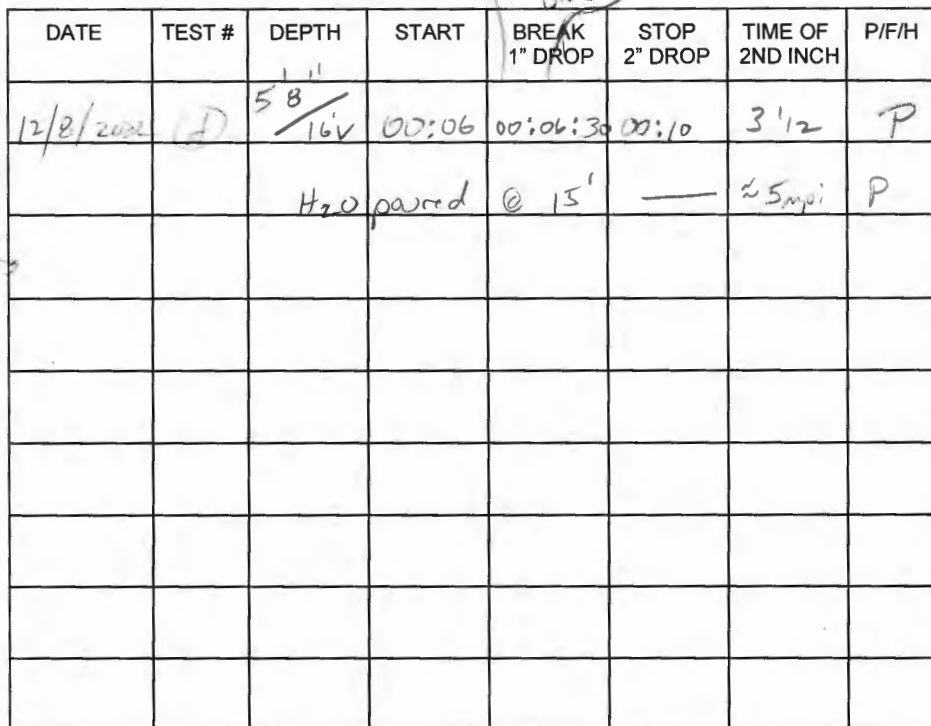 DATE TEST # DEPTH START BREAK 1" DROP STOP 2" DROP TIME OF 2ND INCH P/F/H
12/8/ 5' 8" / 16'V 00:06 00:06:30 00:10 3 1/2 P
H2O poured @ 15' — ≈ 5mpi P